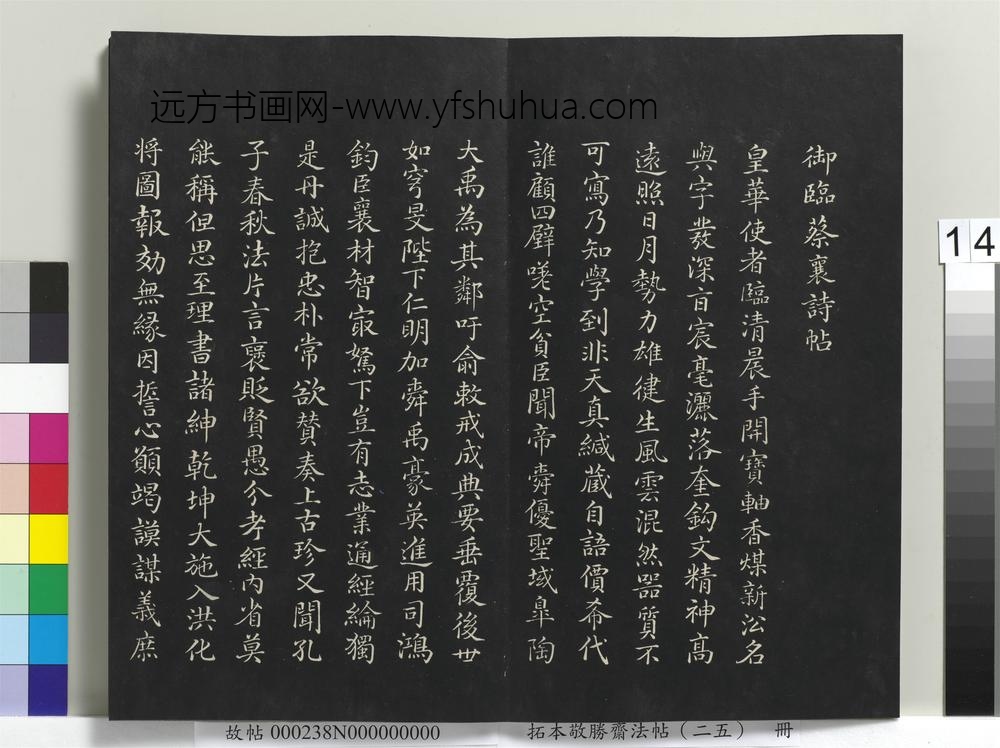 远方书画网-www.yfshuhua.com
御臨蔡襄詩帖
皇華使者臨清晨手開寶軸香煤新沿名
與字發深旨宸毫灑落奎鈎文精神高
遠照日月勢力雄健生風雲混然器質不
可寫乃知學到非天真緘藏自語價希代
誰顧四壁嗟空貧臣聞帝舜優聖域臯陶
大禹為其鄰吁俞敕戒成典要垂覆後世
如穹旻陛下仁明加舜禹豪英進用司鴻
鈞臣襄材智最駑下豈有志業通經綸獨
是丹誠抱忠朴常欲贊奏上古珍又聞孔
子春秋法片言褒貶賢愚分考經內省莫
能稱但思至理書諸紳乾坤大施入洪化
將圖報効無緣因誓心願竭謨謀義庶
14
故帖 000238N000000000
拓本敬勝齋法帖（二五） 冊